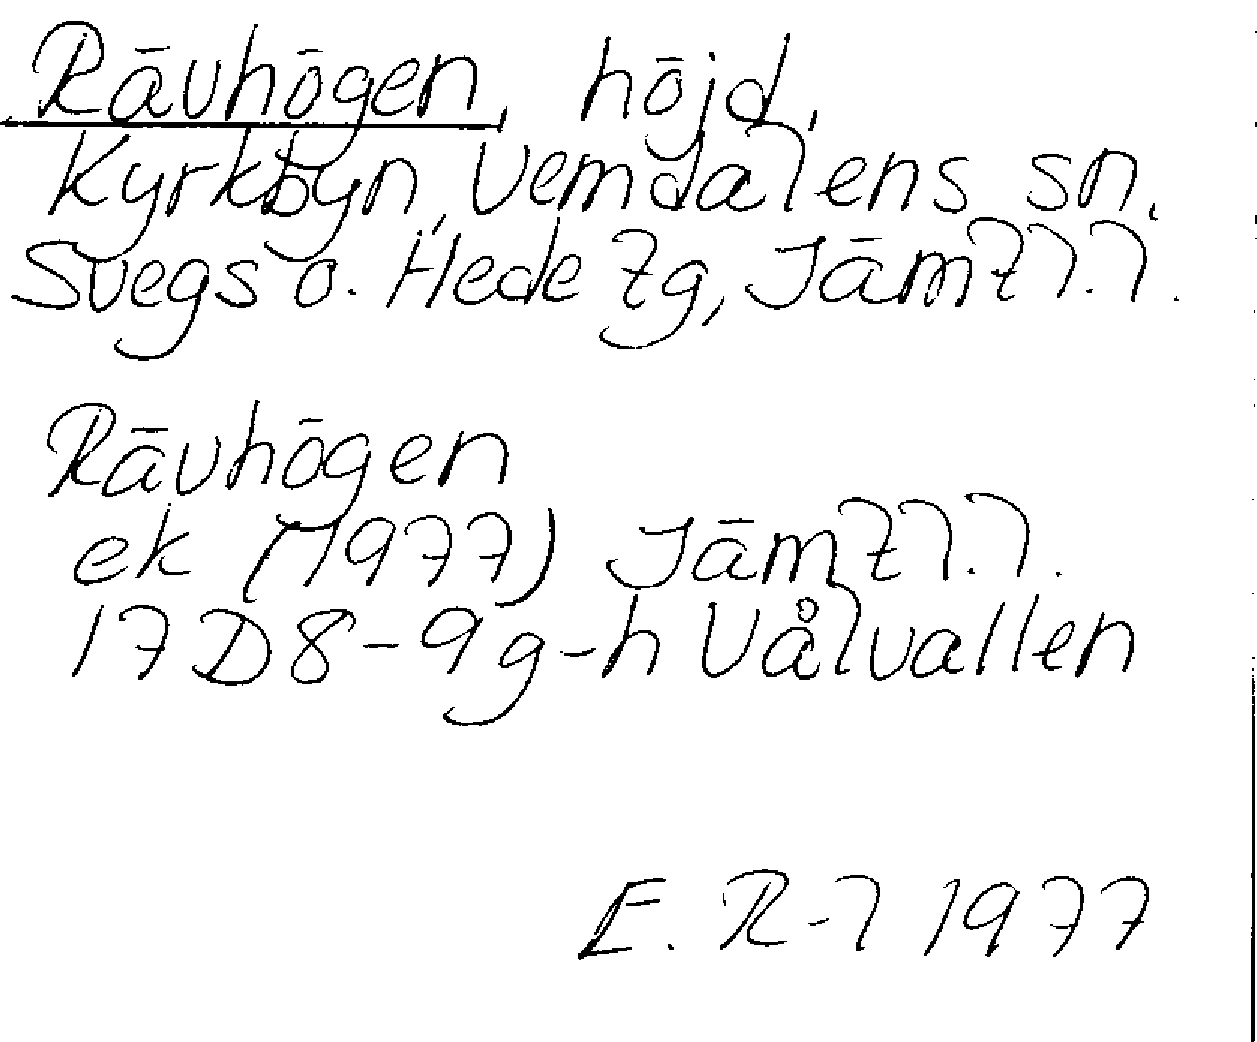 Rävhögen, höjd,
Kyrkbyn, Vemdalens sn.
Svegs o. Hede tg, Jämtl.l.
Rävhögen
ek (1977) Jämtl.l.
17D8-9g-h Vålvallen
E. R-l 1977